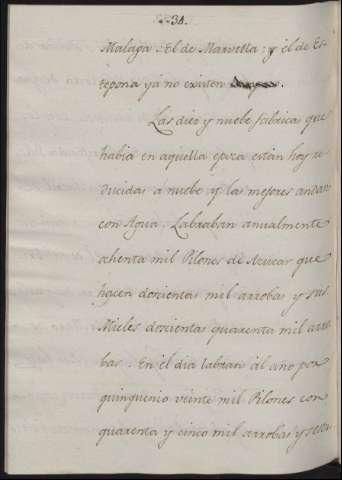 34.
Malaga: El de Marvella: y el de Es-
tepona yá no existen.
Las diez y nuebe fabricas que
habia en aquella epoca están hoy re-
ducidas á nuebe y las mejores andan
con Agua. Labraban anualmente
ochenta mil Pilones de Azucar que
hacen doscientas mil arrobas y sus
Mieles doscientas quarenta mil arro-
bas. En el dia labran al año por
quinquenio veinte mil Pilones con
quarenta y cinco mil arrobas y sesen